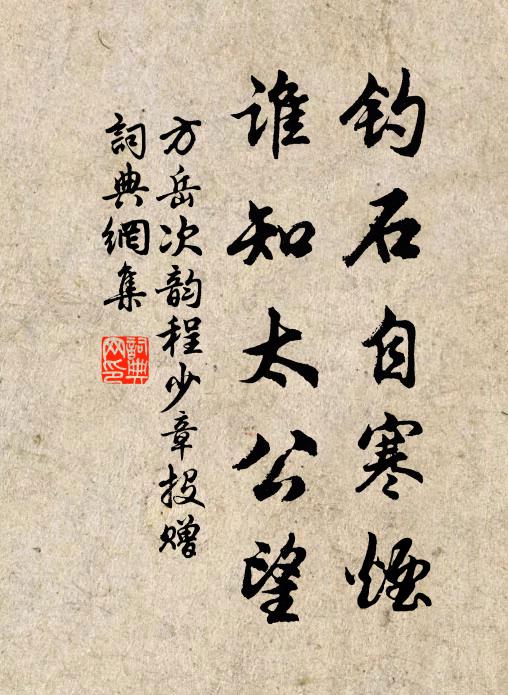 钓石自寒烟
谁知太公望
方岳次韵程少章投赠
詞典網集
詞典网印